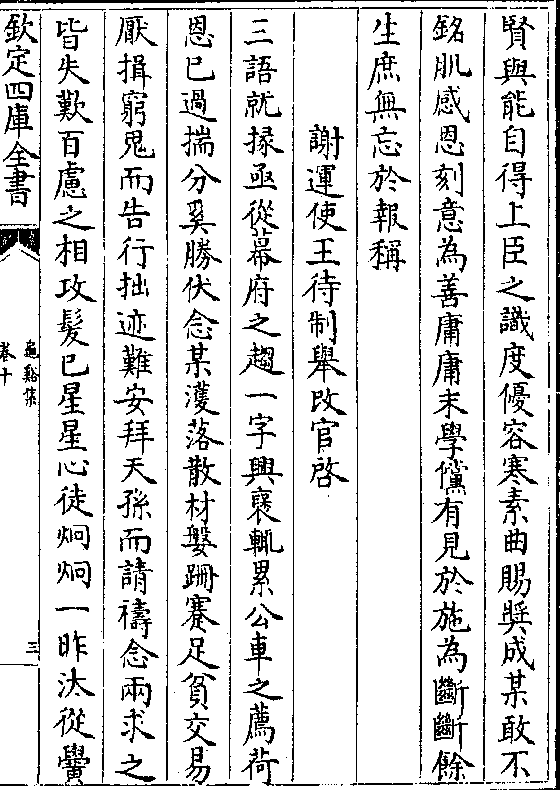 賢與能自得上臣之識度優容寒素曲賜奬成某敢不
銘肌感恩刻意為善庸庸末學儻有見於施為斷斷餘
生庶無忘於報稱
謝運使王待制舉改官啓
三語就掾亟從幕府之趨一字興襃輒累公車之薦荷
恩已過揣分奚勝伏念某濩落散材媻跚蹇足貧交易
厭揖窮鬼而告行拙迹難安拜天孫而請禱念兩求之
皆失歎百慮之相攻髮已星星心徒炯炯一昨汰從黌
欽定四庫全書
龜谿集
卷十
三